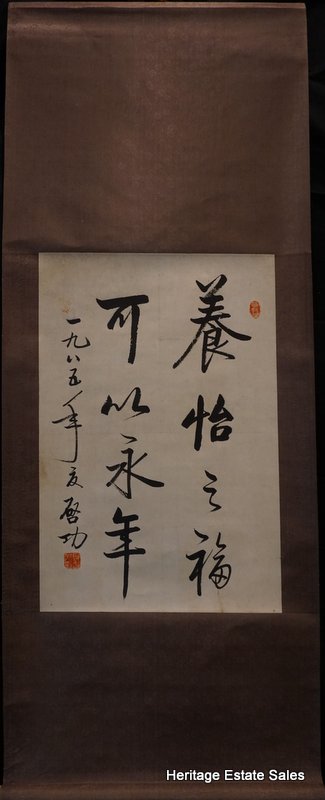 養怡之福
可以永年
一九八五年夏 啓功
Heritage Estate Sales